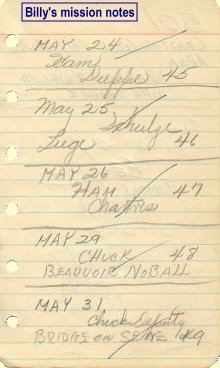 Billy's mission notes
MAY 24
Ham
Dieppe 45
May 25
Schulze
Liege 46
MAY 26
HAM 47
Chartres
MAY 29
CHUCK 48
BEAUVOIR NOBALL
MAY 31
Chuck
BRIDGE ON SEINE 49